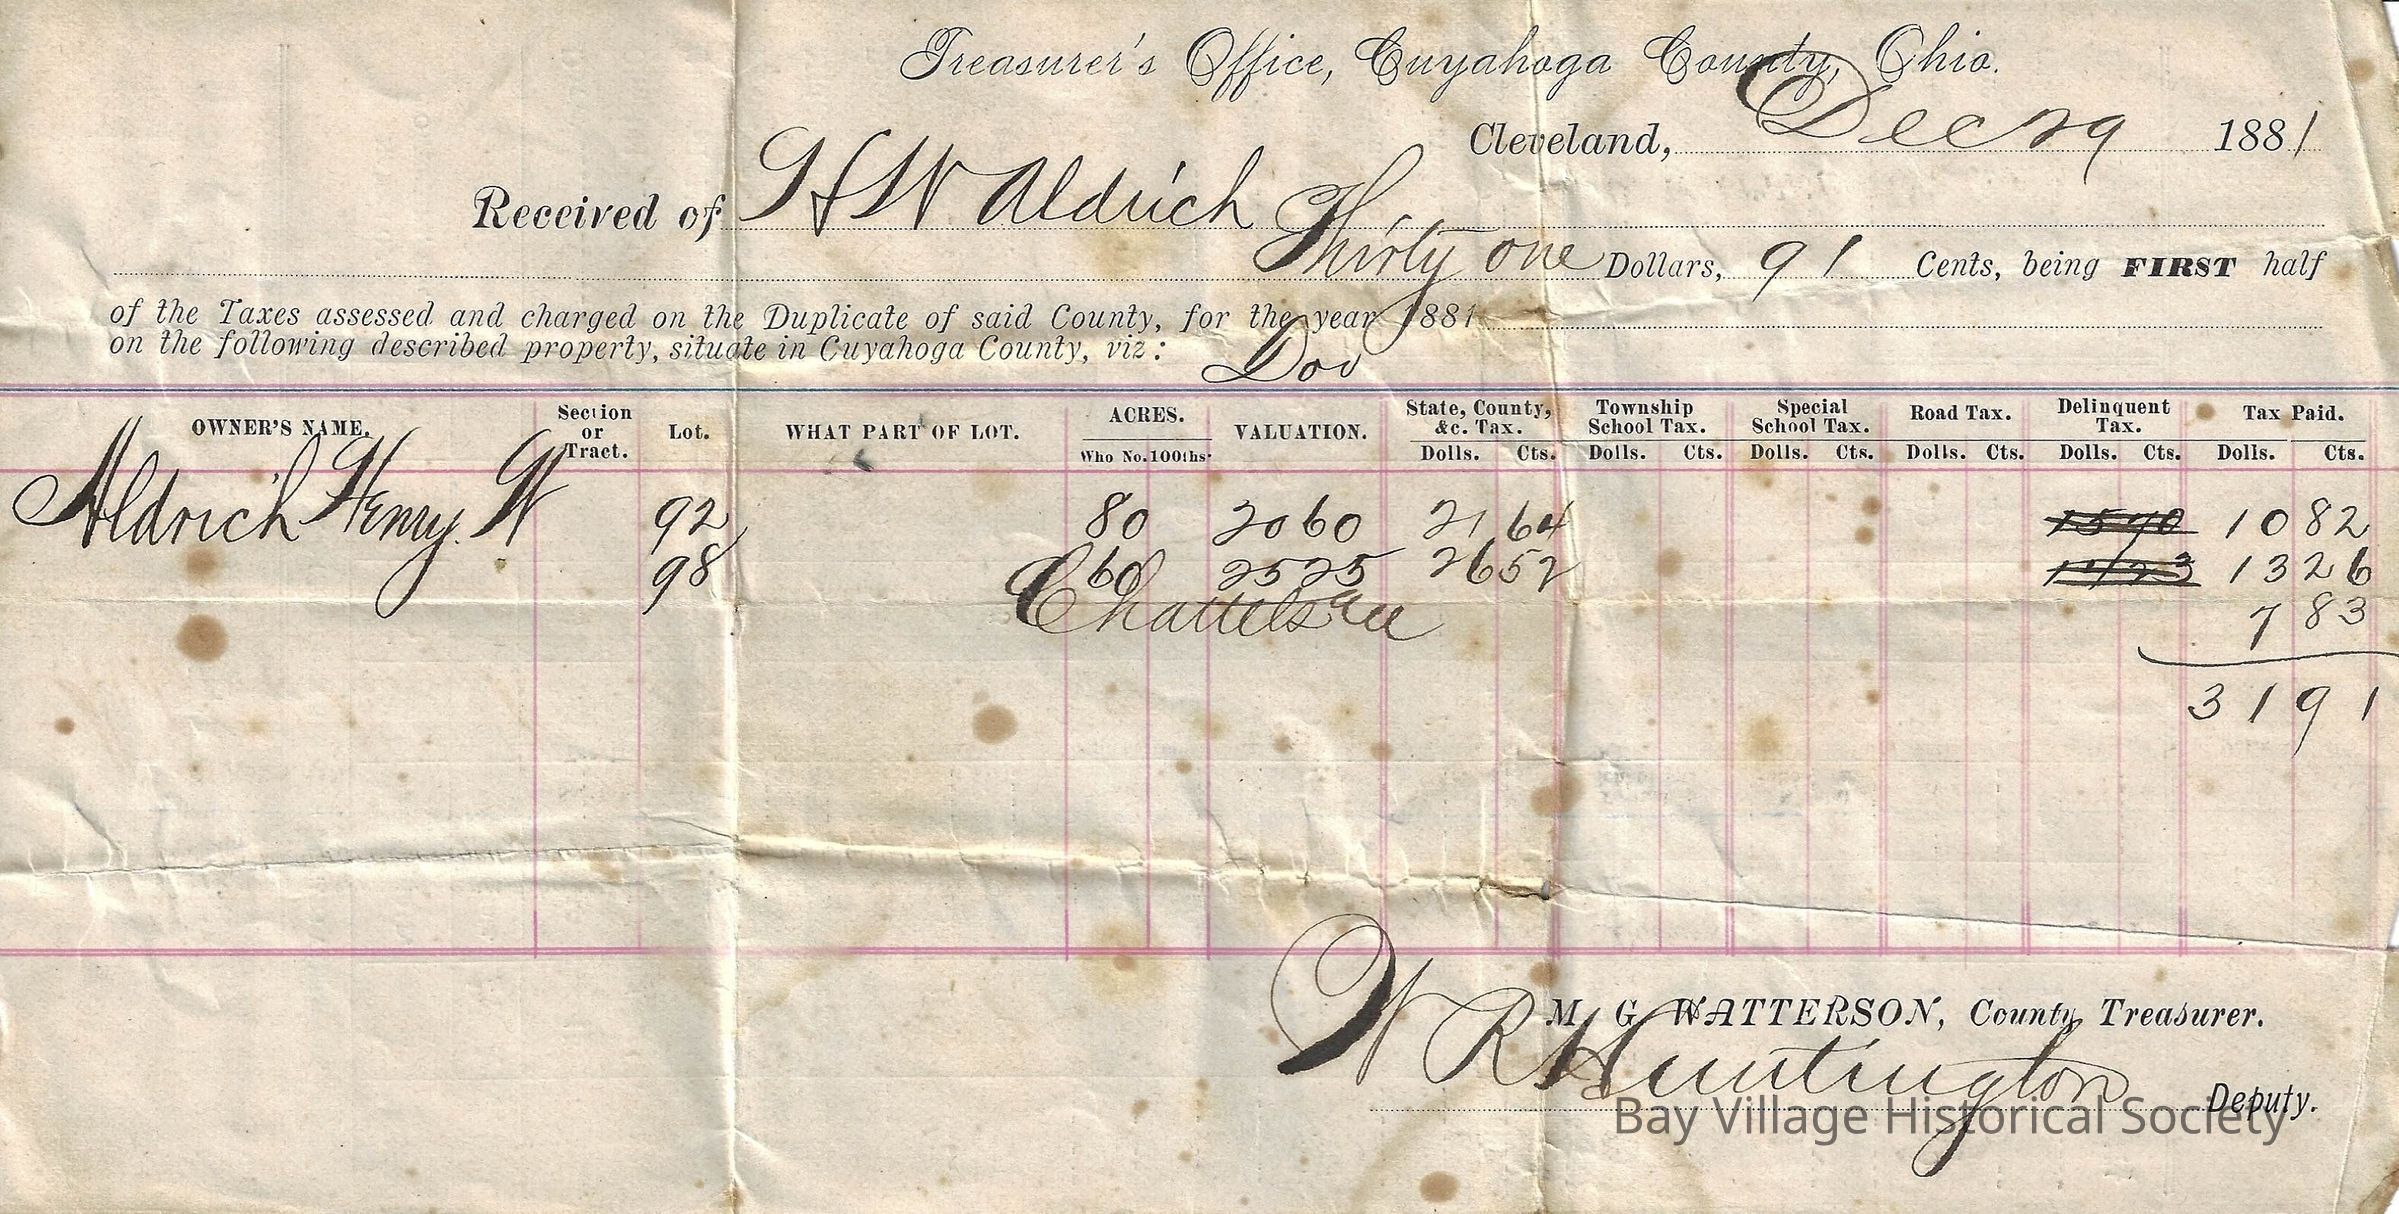 Treasurer's Office, Cuyahoga County, Ohio.
Cleveland, Dec 29 1881
Received of H W Aldrich
Thirty one Dollars, 91 Cents, being FIRST half
of the Taxes assessed and charged on the Duplicate of said County, for the year 1881
on the following described property, situate in Cuyahoga County, viz: Dov
OWNER'S NAME. Section or Tract. Lot. WHAT PART OF LOT. ACRES. Who No. 100ths. VALUATION. State, County, &c. Tax. Dolls. Cts. Township School Tax. Dolls. Cts. Special School Tax. Dolls. Cts. Road Tax. Dolls. Cts. Delinquent Tax. Dolls. Cts. Tax Paid. Dolls. Cts.
Aldrich Henry W 92 80 2060 21 64 10 82
98 60 2525 26 52 13 26
Chattels 7 83
31 91
M G WATTERSON, County Treasurer.
W R Huntington Deputy.
Bay Village Historical Society